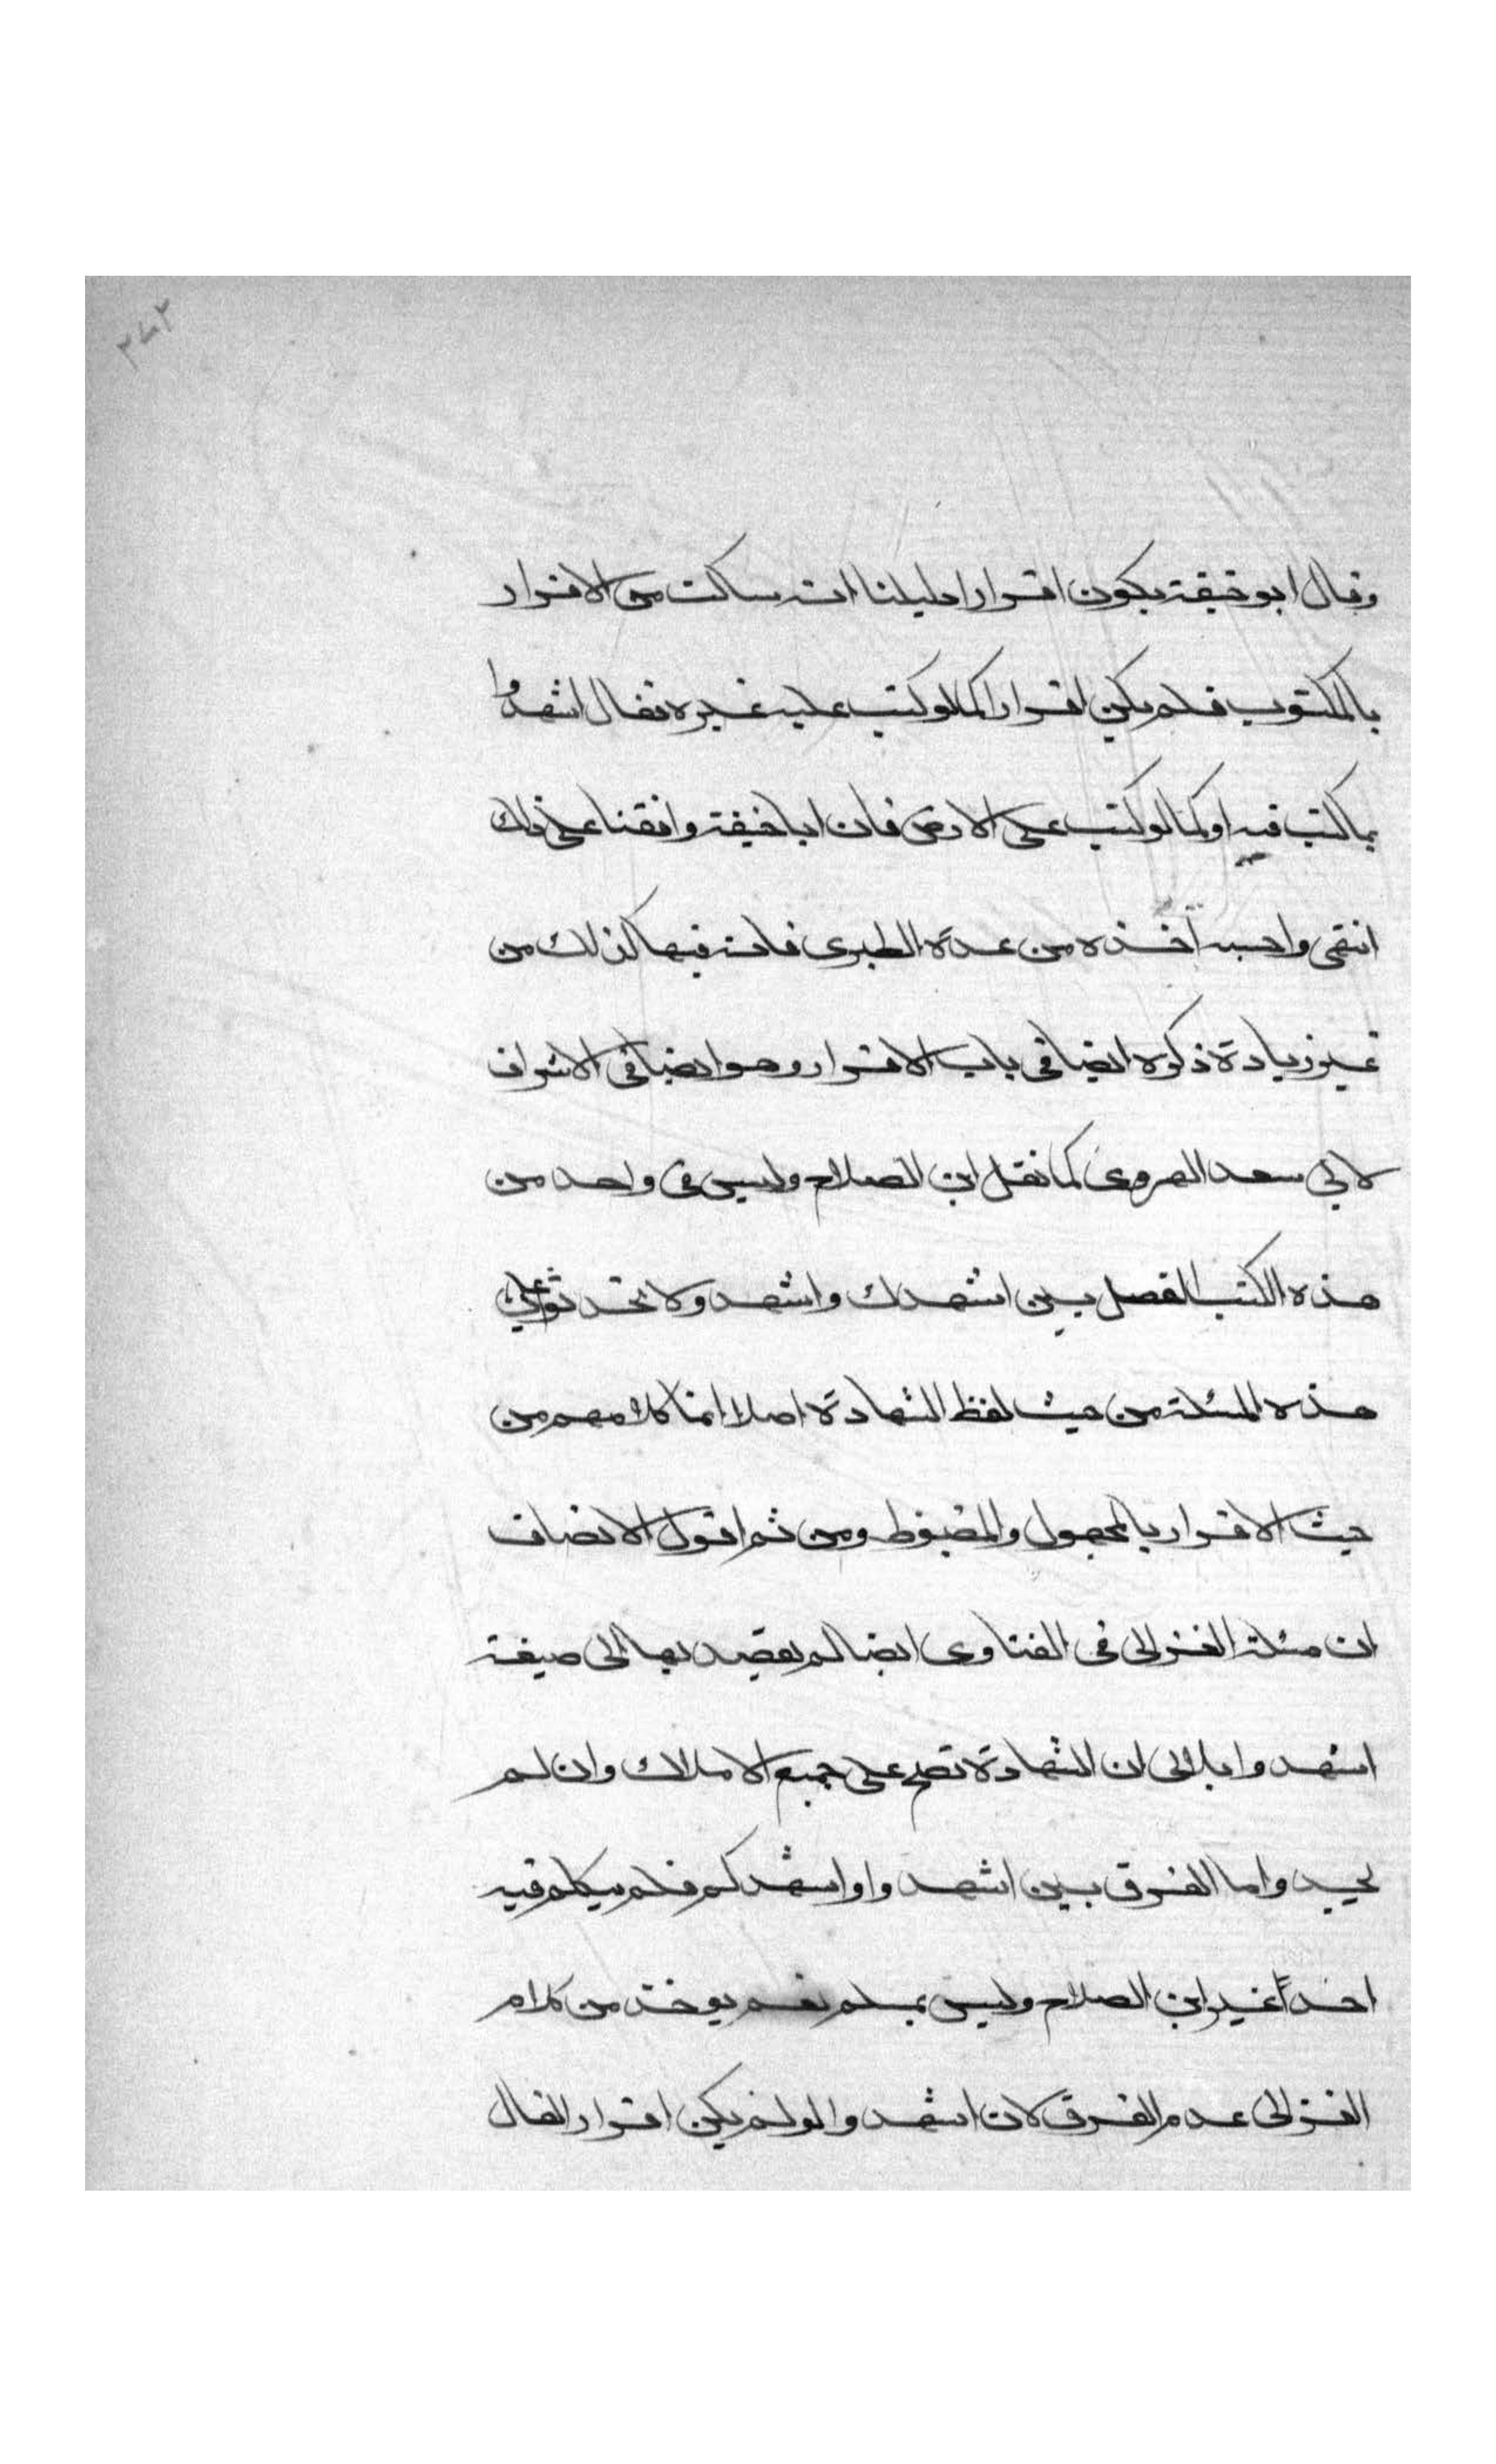 ٢٧٢
وقال ابو حنيفة يكون اقرارا دليلنا انه ساكت عن الاقرار
بالمكتوب فلم يكن اقرارا كما لو كتب عليه غيره فقال اشهدوا
بما كتب فيه او كما لو كتب على الارض فان ابا حنيفة وافقنا على ذلك
انتهى واحسبه اخذه من عدة الطبرى فانه فيها كذلك من
غير زيادة ذكره ايضا فى باب الاقرار وهو ايضا فى الاشراف
لابي سعد الهروى كما نقل ابن الصلاح وليس فى واحد من
هذه الكتب الفصل بين اشهدك واشهد ولا تحدثوا على
هذه المسئلة من حيث لفظ الشهادة اصلا انما كلامهم من
حيث الاقرار بالمجهول والمضبوط ومن ثم اقول الانصاف
ان مسئلة الغزالى فى الفتاوى ايضا لم يقصد بها الى صيغة
اشهدوا بل الى ان الشهادة تصح على جميع الاملاك وان لم
يحد واما الفرق بين اشهدوا واشهدكم فلم يتكلم فيه
احدا غير ابن الصلاح وليس بمسلم نعم يوخذ من كلام
الغزالى عدم الفرق لان اشهدوا لو لم يكن اقرارا لقال